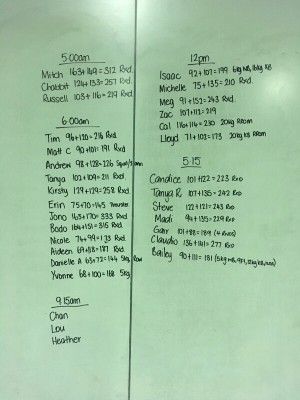 5:00am
Mitch 163+149=312 Rxd.
Chabbit 124+133=257 Rxd.
Russell 103+116=219 Rxd.
6:00am
Tim 96+120=216 Rxd
Matt C 90+101=191 Rxd
Andrew 98+128=226
Tanya 102+109=211 Rxd
Kirsty 129+129=258 Rxd
Erin 75+70=145
Jono 163+170=333 Rxd
Bado 164+151=315 Rxd
Nicole 74+99=173 Rxd
Aideen 69+88=157 Rxd
Danielle A 63+72=144 5kg Row
Yvonne 68+100=168 5kg
9:15am
Chan
Lou
Heather
12pm
Isaac 92+107=199 6kg MB, 16kg KB
Michelle 75+135=210 Rxd.
Meg 91+152=243 Rxd.
Zac 107+112=219
Cal 116+114=230 20kg
Lloyd 71+102=173 20kg KB
5:15
Candice 101+122=223 RxD
Tanya R. 107+135=242 RxD
Steve 122+121=243 RxD
Madi 94+135=229 RxD
Garr 101+88=189
Claudio 136+141=277 RxD
Bailey 90+111=181